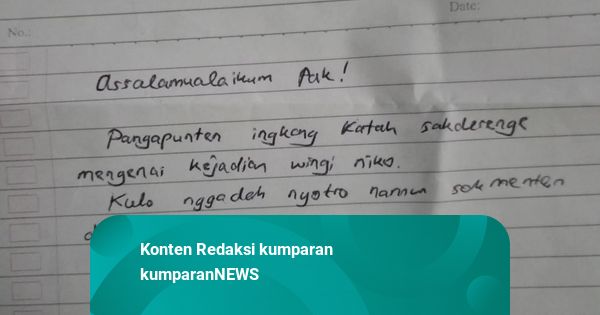 Date:
No.:
Assalamualaikum Pak!
Pangapunten ingkang Katah sakderenge
mengenai kejadian wingi niko.
Kulo nggadah nyotro namun sak menten
Konten Redaksi kumparan
kumparanNEWS